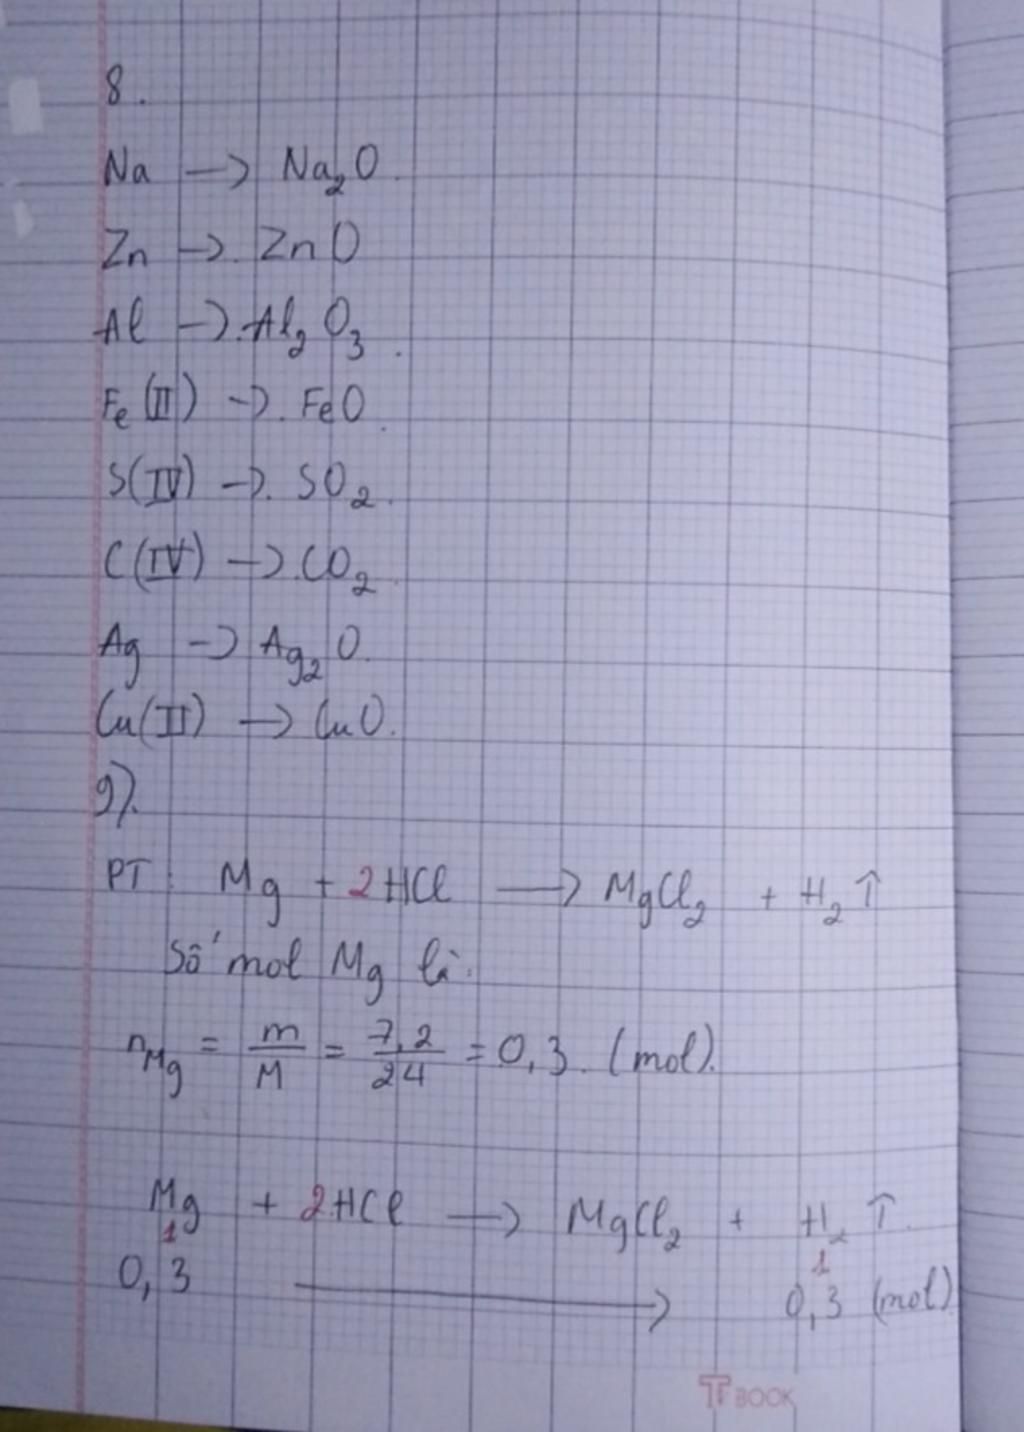 8.
Na → Na₂O.
Zn → ZnO
Al → Al₂O₃.
Fe(II) → FeO.
S(IV) → SO₂.
C(IV) → CO₂.
Ag → Ag₂O.
Cu(II) → CuO.
9).
PT: Mg + 2HCl → MgCl₂ + H₂↑
Số mol Mg là:
nMg = m/M = 7,2/24 = 0,3. (mol).
Mg + 2HCl → MgCl₂ + H₂↑.
1 1
0,3 → 0,3 (mol)
TT BOOK